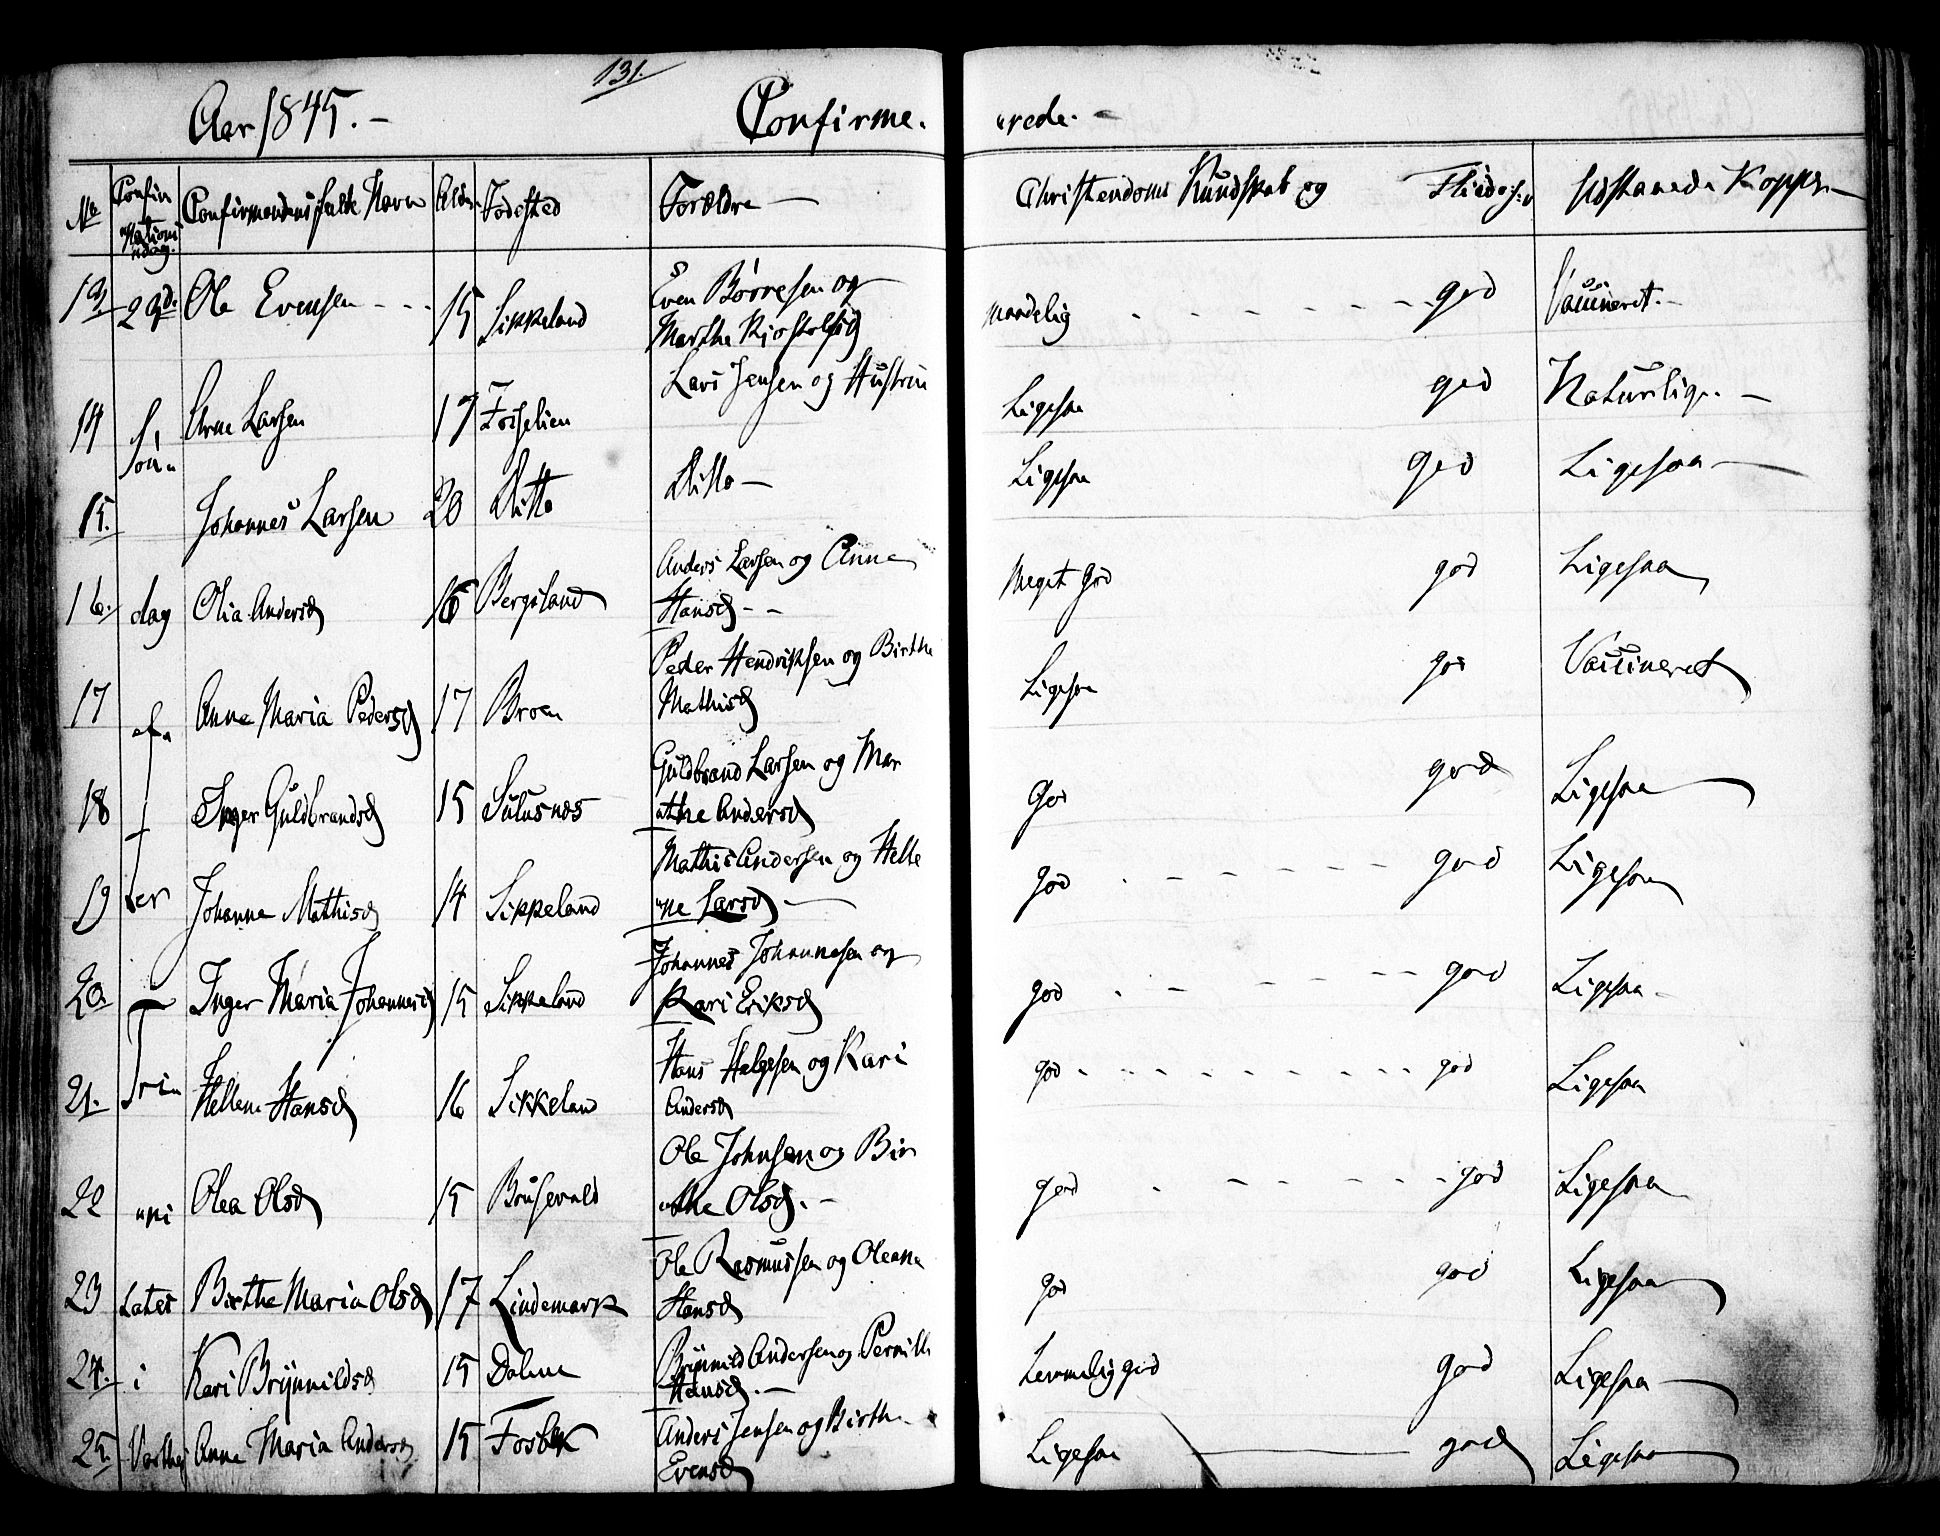 131.
Aar 1845.- Confirme. "rede.-
No Confir"mations"dag. Confirmandens fulde Navn Alder Fødested Forældre — Christendoms Kundskab og Flid Udstaaede Kopper
13 23d. Ole Evensen - - . 15 Sikkeland Even Børresen og Maadelig - - - - - god Vaccineret.-
Marthe Kjøstolfsd
14 S. Arne Larsen 17 Fosselien Lars Jensen og Hustrue Ligesaa god Naturlige. —
Søn"
15. Johannes Larsen 20 Ditto Ditto — Ligesaa god Ligesaa —
16. dag Olia Andersd 16 Bergsland Anders Larsen og Anne Meget god god Ligesaa
Hansd - -
17 ef" Anne Maria Pedersd 17 Broen Peder Hendriksen og Birthe Ligesaa god Vaccineret
Mathisd
18 Inger Guldbrandsd 15 Sulusnæs Guldbrand Larsen og Mar God god Ligesaa
"the Andersd
19 ter Johanna Mathisd 14 Sikkeland Mathis Andersen og Helle god - - - - - god Ligesaa
"ne Larsd —
20. Inger Maria Johannesd 15 Sikkeland Johannes Johannesen og god - - - - - god Ligesaa -
Kari Eriksd
21. Tri" Hellene Hansd 16 Sikkeland Hans Helgesen og Kari god - - - - - - - god Ligesaa
Andersd
22 "ni Olea Olsd 15 Brusevold Ole Johnsen og Bir god - - - - - god Ligesaa
"the Olsd. -
23 tates Birthe Maria Olsd 17 Lindemark Ole Rasmussen og Oleana god god Ligesaa
Hansd
24. i Kari Brynnildsd 15 Dalene Brynnild Andersen og Pernille Temmelig god god Ligesaa —
Hansd. —
25. Vartheg Anna Maria Andersd 15 Fosbæk Anders Jensen og Birthe Ligesaa — god Ligesaa
Evensd